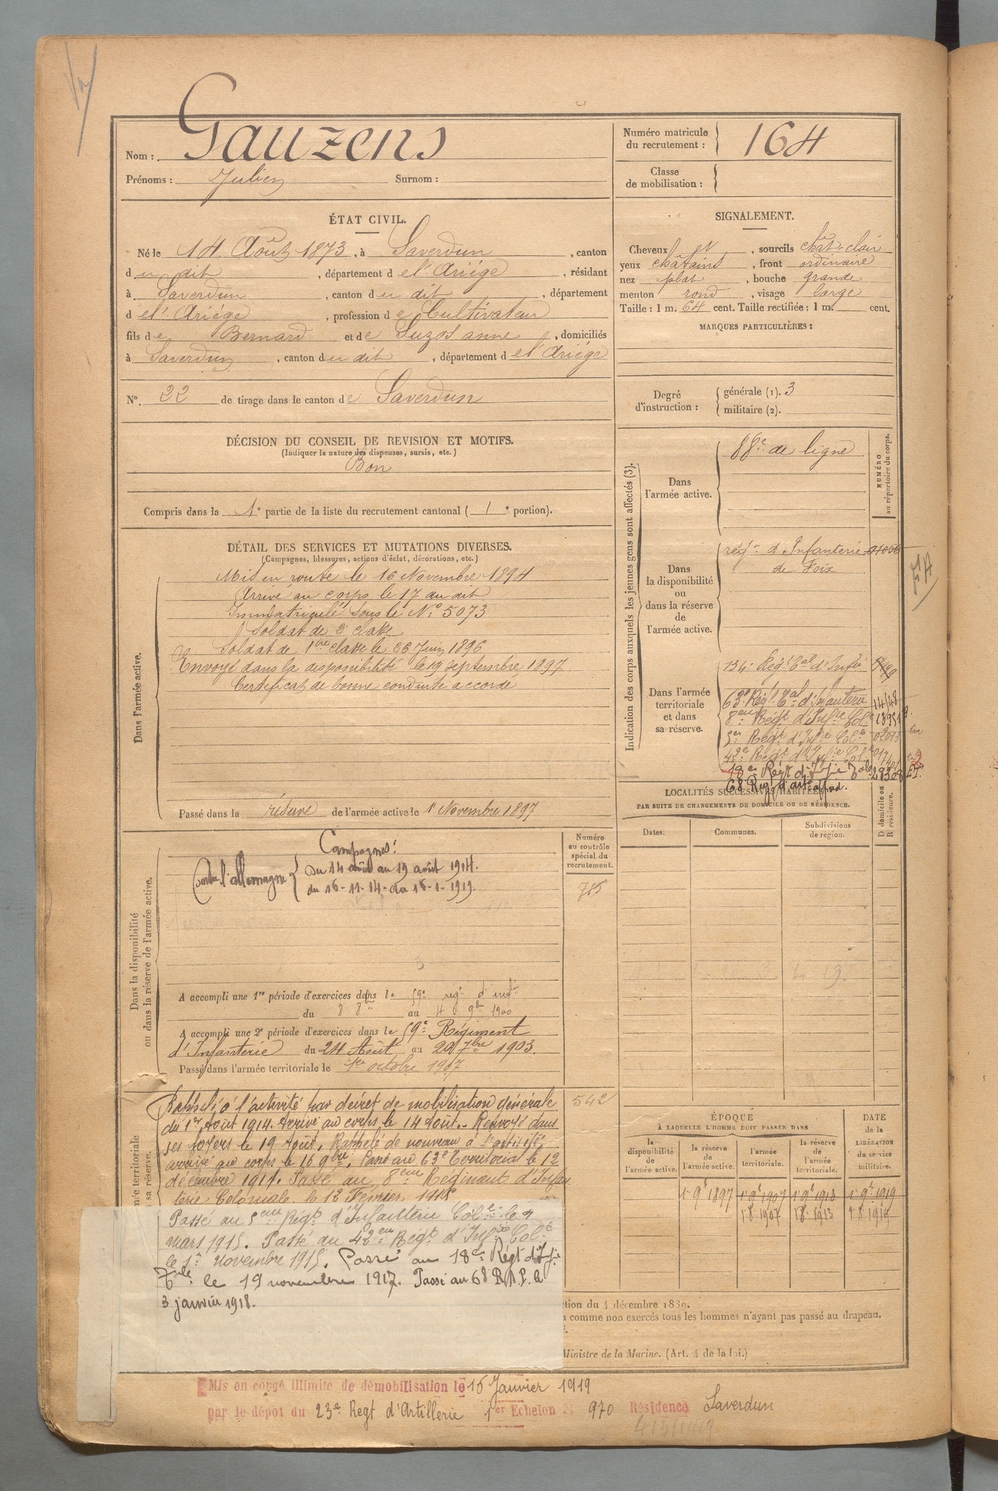 Nom : Gauzens
Prénoms : Julien Surnom :
Numéro matricule du recrutement : 164
Classe de mobilisation :
ÉTAT CIVIL.
Né le 14 Août 1873, à Saverdun, canton
du dit, département de l'Ariége, résidant
à Saverdun, canton du dit, département
de l'Ariége, profession de Cultivateur
fils de Bernard et de anne, domiciliés
à Saverdun, canton du dit, département de l'Ariége
N°. 22 de tirage dans le canton de Saverdun
SIGNALEMENT.
Cheveux et sourcils chat-clair
yeux châtains, front ordinaire
nez plat, bouche grande
menton rond, visage large
Taille : 1 m. 64 cent. Taille rectifiée : 1 m. cent.
MARQUES PARTICULIÈRES :
Degré d'instruction : générale (1). 3
militaire (2).
DÉCISION DU CONSEIL DE REVISION ET MOTIFS.
(Indiquer la nature des dispenses, sursis, etc.)
Bon
Compris dans la 1e partie de la liste du recrutement cantonal ( 1e portion).
DÉTAIL DES SERVICES ET MUTATIONS DIVERSES.
(Campagnes, blessures, actions d'éclat, décorations, etc.)
Dans l'armée active.
Mis en route le 16 Novembre 1894
Arrivé au corps le 17 au dit
Immatriculé sous le N° 5073
Soldat de 2e classe
Soldat de 1ère classe le 26 Juin 1896
Envoyé dans la disponibilité le 19 Septembre 1897
Certificat de bonne conduite accordé
Passé dans la réserve de l'armée active le 1er Novembre 1897
Indication des corps auxquels les jeunes gens sont affectés (3).
NUMÉRO au répertoire du corps.
Dans l'armée active.
88e de ligne
Dans la disponibilité ou dans la réserve de l'armée active.
régt d'Infanterie
de Foix
Dans l'armée territoriale et dans sa réserve.
134e Régt tal d'Infie
63e Régt tal d'Infanterie
8eme Régt d'Infie Cole
5e Régt d'Infie Cole
42e Régt d'Infie Cole
18e Régt d'Infie
68 Régt d'art
LOCALITÉS SUCCESSIVES HABITÉES
PAR SUITE DE CHANGEMENTS DE DOMICILE OU DE RÉSIDENCE.
Dates. Communes. Subdivisions de région. D. domicile ou R. résidence.
Dans la disponibilité ou dans la réserve de l'armée active.
Numéro au contrôle spécial du recrutement.
715
Campagnes :
Contre l'allemagne
du 14 août au 19 août 1914.
du 16-11-14 au 16-1-1919.
A accompli une 1re période d'exercices dans le 59e régt d'infie
du 8 8bre au 4 9bre 1900
A accompli une 2e période d'exercices dans le 59e Régiment
d'Infanterie du 24 Août au 20 7bre 1903.
Passé dans l'armée territoriale le 1er octobre 1907
542
Rappelé à l'activité par décret de mobilisation Générale
du 1er Août 1914. Arrivé au corps le 14 aout. Renvoyé dans
ses foyers le 19 Août. Rappelé de nouveau à l'activité,
arrivé au corps le 16 9bre. Passé au 63e Territorial le 12
décembre 1914. Passé au 8eme Régiment d'Infan
terie Coloniale, le 13 Février 1915
Passé au 5eme Régt d'Infanterie Cole le 7
mars 1915. Passé au 42e Régt d'Infie Cole
le 1er novembre 1915. Passé au 18e Régt d'Infie
Tale le 19 novembre 1917. Passé au 68 R.A.P. le
3 janvier 1918.
ÉPOQUE
À LAQUELLE L'HOMME DOIT PASSER DANS
la disponibilité de l'armée active.
la réserve de l'armée active.
l'armée territoriale.
la réserve de l'armée territoriale.
DATE de la LIBÉRATION du service militaire.
1 9bre 1897
1 9bre 1907
1 9bre 1913
1 9bre 1919
ction du 4 décembre 1889.
comme non exercés tous les hommes n'ayant pas passé au drapeau.
Ministre de la Marine. (Art. 4 de la loi.)
Mis en congé illimité de démobilisation le 16 Janvier 1919
par le dépôt du 23e Régt d'Artillerie 1er Echelon N° 970 Résidence Saverdun